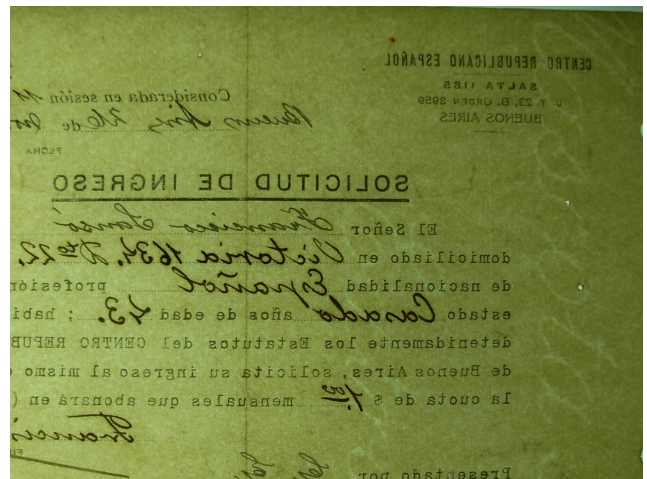 CENTRO REPUBLICANO ESPAÑOL
SALTA 1185
U. T. 23, B. ORDEN 3959
BUENOS AIRES
Considerada en sesión
Buenos Aires, 26 de
FECHA
SOLICITUD DE INGRESO
El Señor Francisco
domiciliado en Victoria 1634, Dto 22,
de nacionalidad Español profesión
estado Casado años de edad 43. ; habi
detenidamente los Estatutos del CENTRO REPUB
de Buenos Aires, solicita su ingreso al mismo
la cuota de $ mensuales que abonará en (
Francis
Presentado por